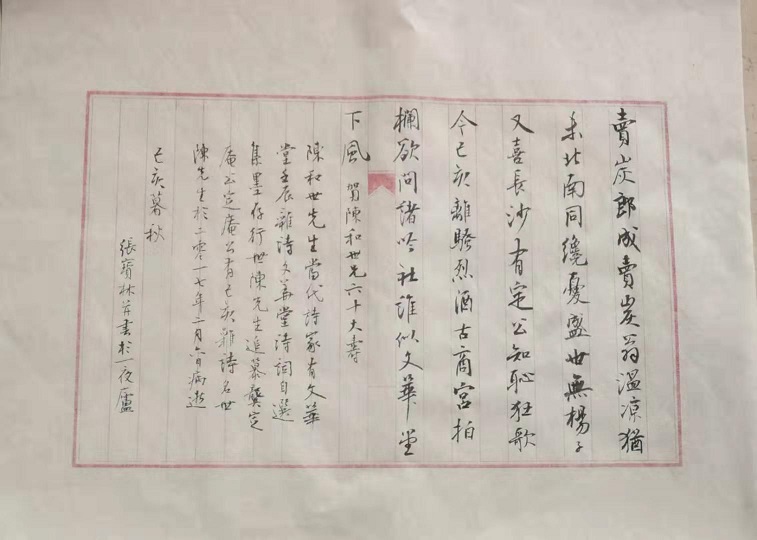 賣炭郎成賣炭翁溫凉猶
東北南同纔憂盛世無楊子
又喜長沙有定公知恥狂歌
今已亥離騷烈酒古商宮拍
欄欲問諸吟社誰似文華堂
下風 賀陳和世先六十大壽
陳和世先生當代詩家有文華
堂壬辰雜詩文華堂詩詞自選
集墨存行世陳先生追慕龔定
庵公定庵公有已亥雜詩名世
陳先生於二零一七年二月六日病逝
已亥暮秋
張寶林并書於一夜廬